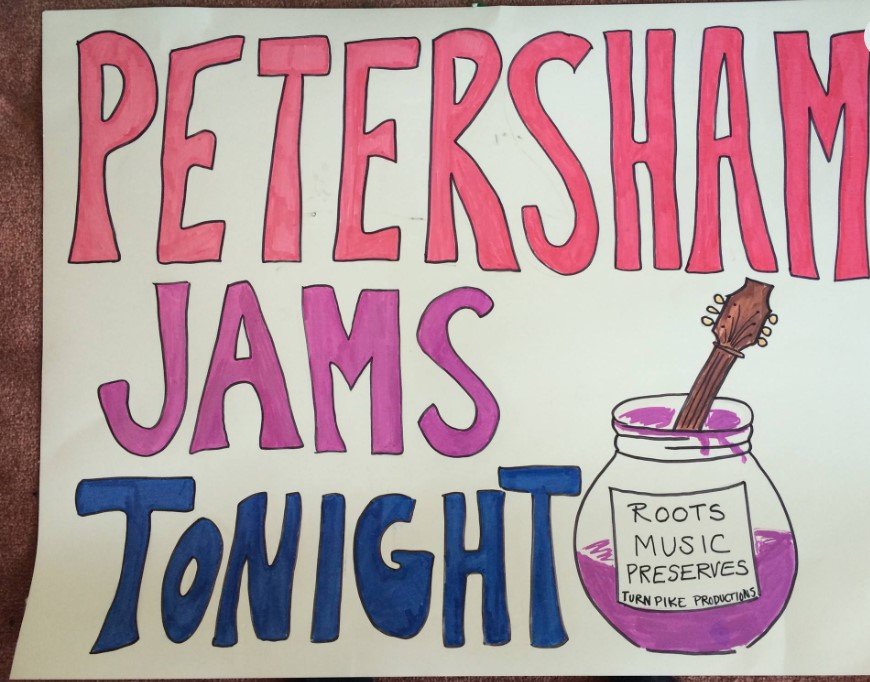 PETERSHAM
JAMS
TONIGHT
ROOTS
MUSIC
PRESERVES
TURNPIKE PRODUCTIONS